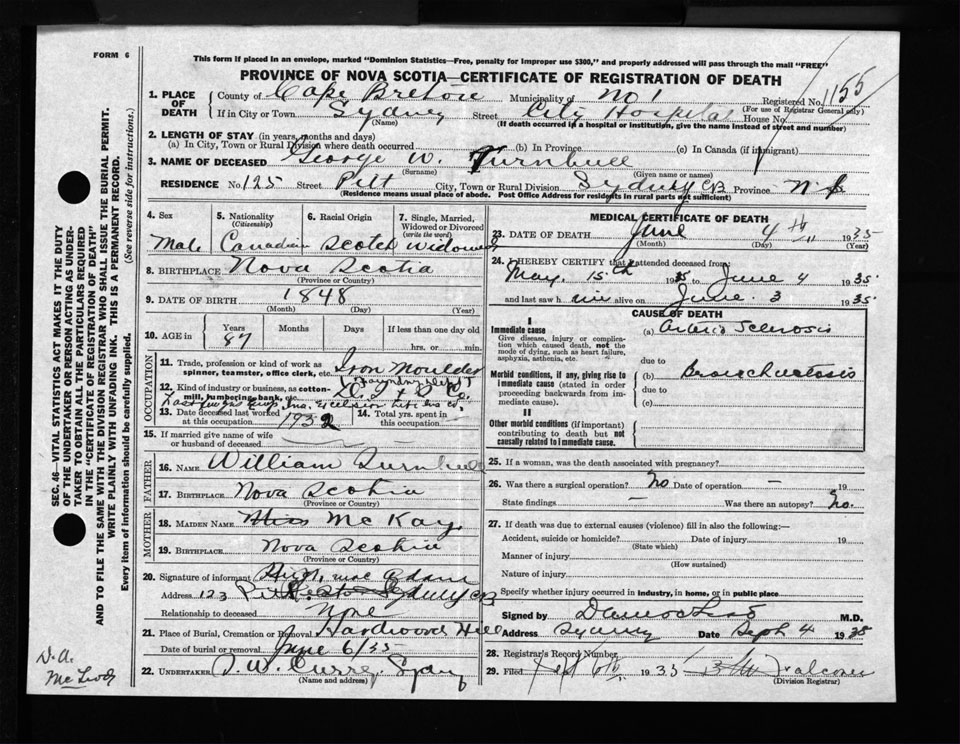 FORM 6
This form if placed in an envelope, marked "Dominion Statistics—Free, penalty for improper use $300," and properly addressed will pass through the mail "FREE"
PROVINCE OF NOVA SCOTIA—CERTIFICATE OF REGISTRATION OF DEATH
1. PLACE OF DEATH
County of Cape Breton Municipality of No 1 Registered No. 1155
(For use of Registrar General only)
If in City or Town Sydney Street City Hospital House No.
(Name) (If death occurred in a hospital or institution, give the name instead of street and number)
2. LENGTH OF STAY (in years, months and days)
(a) In City, Town or Rural Division where death occurred (b) In Province (c) In Canada (if immigrant)
3. NAME OF DECEASED George W. Turnbull
(Surname) (Given name or names)
RESIDENCE No. 125 Street Pitt City, Town or Rural Division Sydney CB Province N S
(Residence means usual place of abode. Post Office Address for residents in rural parts not sufficient)
4. Sex
Male
5. Nationality
(Citizenship)
Canadian
6. Racial Origin
Scotch
7. Single, Married, Widowed or Divorced
(write the word)
Widowed
8. BIRTHPLACE Nova Scotia
(Province or Country)
9. DATE OF BIRTH 1848
(Month) (Day) (Year)
10. AGE in
Years Months Days If less than one day
87
hrs. or min.
OCCUPATION
11. Trade, profession or kind of work as spinner, teamster, office clerk, etc. Iron Moulder
12. Kind of industry or business, as cotton-mill, lumbering, bank, etc.
13. Date deceased last worked at this occupation 1932
14. Total yrs. spent in this occupation
15. If married give name of wife or husband of deceased
FATHER
16. NAME William Turnbull
17. BIRTHPLACE Nova Scotia
(Province or Country)
MOTHER
18. MAIDEN NAME Miss McKay
19. BIRTHPLACE Nova Scotia
(Province or Country)
20. Signature of informant
Address 123 Pitt St Sydney CB
Relationship to deceased None
21. Place of Burial, Cremation or Removal Hardwood Hill
Date of burial or removal June 6/35
22. UNDERTAKER
(Name and address)
MEDICAL CERTIFICATE OF DEATH
23. DATE OF DEATH June 4th 1935
(Month) (Day) (Year)
24. I HEREBY CERTIFY that I attended deceased from:
May 15th 1935 to June 4 1935
and last saw him alive on June 3 1935
CAUSE OF DEATH
I
Immediate cause
Give disease, injury or complication which caused death, not the mode of dying, such as heart failure, asphyxia, asthenia, etc.
(a) Arterio Sclerosis
due to
Morbid conditions, if any, giving rise to immediate cause (stated in order proceeding backwards from immediate cause).
(b)
due to
(c)
II
Other morbid conditions (if important) contributing to death but not causally related to immediate cause.
25. If a woman, was the death associated with pregnancy?
26. Was there a surgical operation? No Date of operation — 19
State findings — Was there an autopsy? No.
27. If death was due to external causes (violence) fill in also the following:—
Accident, suicide or homicide? Date of injury 19
(State which)
Manner of injury
(How sustained)
Nature of injury
Specify whether injury occurred in industry, in home, or in public place
Signed by M.D.
Address Sydney Date Sept 4 1935
28. Registrar's Record Number
29. Filed 1935
(Division Registrar)
SEC. 46—VITAL STATISTICS ACT MAKES IT THE DUTY
OF THE UNDERTAKER OR PERSON ACTING AS UNDER-
TAKER TO OBTAIN ALL THE PARTICULARS REQUIRED
IN THE "CERTIFICATE OF REGISTRATION OF DEATH"
AND TO FILE THE SAME WITH THE DIVISION REGISTRAR WHO SHALL ISSUE THE BURIAL PERMIT.
WRITE PLAINLY WITH UNFADING INK. THIS IS A PERMANENT RECORD.
Every item of information should be carefully supplied. (See reverse side for instructions.)